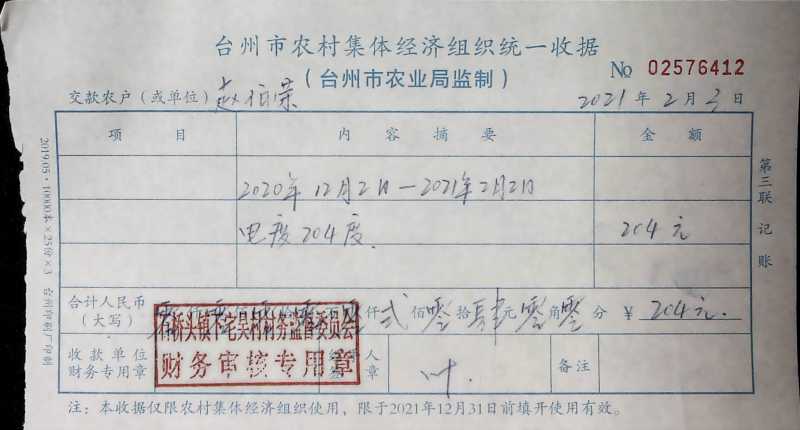 台州市农村集体经济组织统一收据
(台州市农业局监制)
No 02576412
交款农户(或单位) 赵伯荣
2021年2月3日
项 目 内 容 摘 要 金 额
2020年12月2日—2021年2月2日
电度204度. 204元
合计人民币
(大写)
仟 贰 佰 零 拾 肆 元 零 角 零 分 ¥ 204元.
石桥头镇下宅吴村村务监督委员会
财务审核专用章
收款单位
财务专用章
人
章
叶.
备注
注:本收据仅限农村集体经济组织使用,限于2021年12月31日前填开使用有效。
第三联 记账
2019.05·10000本×25份×3 台州印刷厂印制